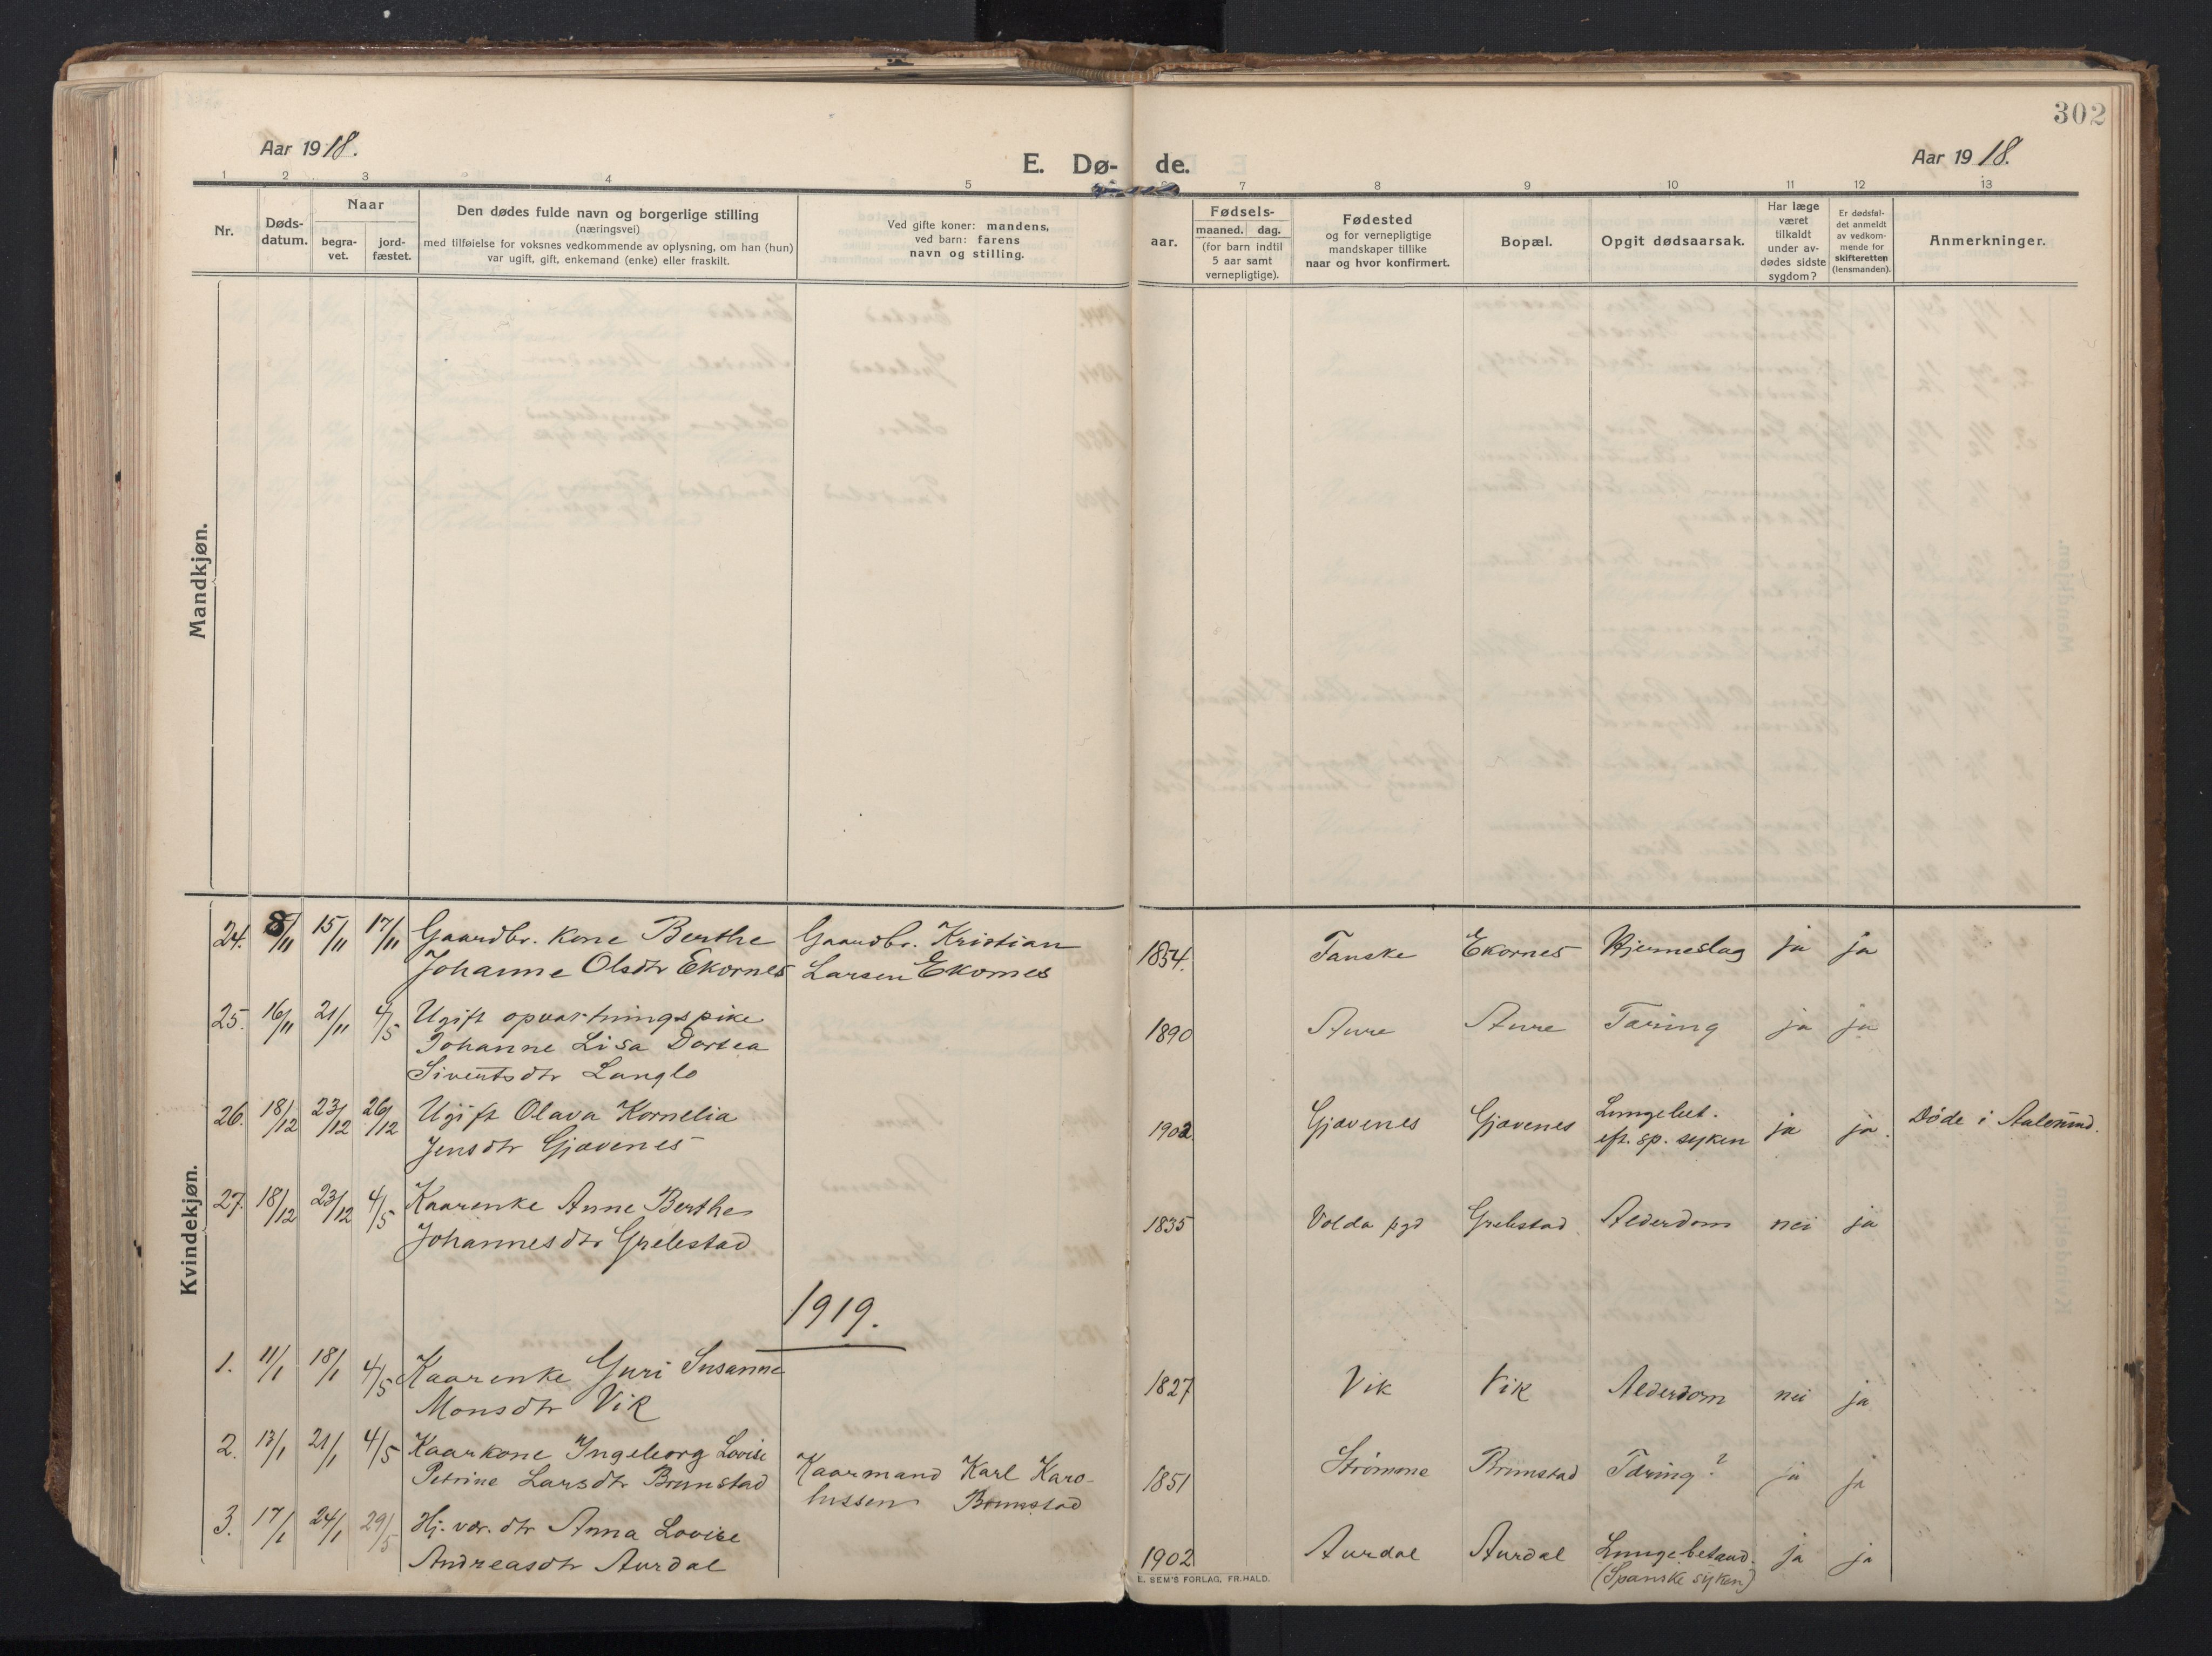 302
Aar 1918.
E. Dø-de.
Aar 1918.
1 2 3 4 5 7 8 9 10 11 12 13
Nr.
Døds-
datum.
Naar
begra-
vet.
jord-
fæstet.
Den dødes fulde navn og borgerlige stilling
(næringsvei)
med tilføielse for voksnes vedkommende av oplysning, om han (hun)
var ugift, gift, enkemand (enke) eller fraskilt.
Ved gifte koner: mandens,
ved barn: farens
navn og stilling.
aar.
Fødsels-
maaned. dag.
(for barn indtil
5 aar samt
vernepligtige).
Fødested
og for vernepligtige
mandskaper tillike
naar og hvor konfirmert.
Bopæl.
Opgit dødsaarsak.
Har læge
været
tilkaldt
under av-
dødes sidste
sygdom?
Er dødsfal-
det anmeldt
av vedkom-
mende for
skifteretten
(lensmanden).
Anmerkninger.
Mandkjøn.
Kvindekjøn.
24. 8/11 15/11 17/11 Gaardbr. kone Berthe Gaardbr. Kristian
Johanne Olsdtr Ekornes Larsen Ekornes 1854. Tanske Ekornes Hjerneslag ja ja
25. 16/11 21/11 4/5 Ugift opvartningspike
Johanne Lisa Dortea 1890 Aure Aure Tæring ja ja
Siventsdtr Langlo
26. 18/12 23/12 26/12 Ugift Olava Kornelia
Jensdtr Gjævenes 1902. Gjævenes Gjævenes Lungebet.
eft. sp. syken ja ja. Døde i Aalesund.
27. 18/12 23/12 4/5 Kaarenke Anne Berthe
Johannesdtr Grebstad 1835 Volda pgd Grebstad. Alderdom nei ja
1919.
1. 11/1 18/1 4/5 Kaarenke Guri Susanne
Monsdtr Vik 1827 Vik Vik Alderdom nei ja
2. 13/1 21/1 4/5 Kaarkone Ingeborg Lovise
Petrine Larsdtr Brunstad Kaarmand Karl Karo-
lussen Brunstad 1851 Strømme Brunstad Tæring? ja ja
3. 17/1 24/1 29/5 Hj. vær. dtr Anna Lovise
Andreasdtr Aurdal 1902 Aurdal Aurdal Lungebetænd.
(Spanske syken) ja ja
E. SEM'S FORLAG, FR.HALD.